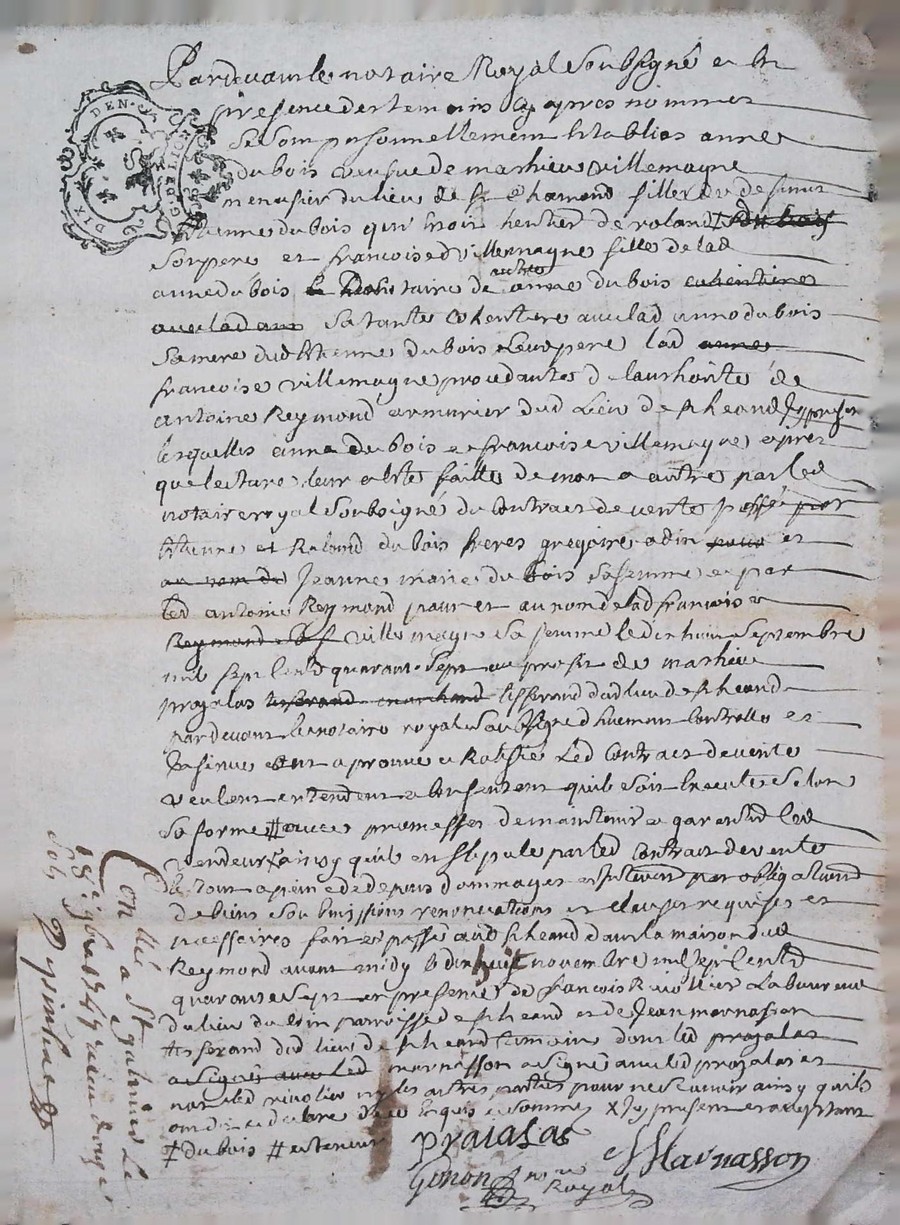 Pardevant le notaire Royal Soubsigné et En
presence des temoins cy apres nommes
Se Sont personnellement Establies anne
dubois veufue de mathieu villemagne
menusier du lieu de St Chamond filles du defunt
Etienne dubois qui etoit heritier de roland ‡ dubois
Son pere et francoise villemagne fille de lad
anne dubois taire de autre anne dubois
Sa tante Coheritiere avec lad anne dubois
Sa mere dud Etienne dubois Leur pere lad anne
francoise villemagne procedantes de l'authorité de
antoine Reymond armurier dud Lieu de St heand Icy present
lesquelles anne dubois et francoise villemagne apres
que lecture leur a été faitte de mot a autre par led
notaire royal Soubsigné du Contract de vente passé par
Etienne et Roland dubois freres gregoire odin et
Jeanne marie du bois Sa femme et par
led antoine Reymond pour et au nom de lad francoise
villemagne Sa femme le dix huit Septembre
mil Sept Cents quarante Sept au profit de mathieu
prajalas tisserand marchand tisserand dud lieu de St heand
pardevant le notaire royal Soubsigné dhuement Controllé et
Insinué ont aprouvé et Ratifié Led Contract de vente
veulent entendent et Consentent quil Soit Executé Selon
Sa forme # avec promesses de maintenir et garantir led
vendeur ainsy quil est Stipulé par led Contract de vente
du tout a peine de depens dommages par obligations
de biens Soubmissions renonciations et clauses requises et
necessaires fait et passé aud St heand dans la maison dud
Reymond avant midy le dix huit novembre mil Sept Cents
quarante Sept en presence de francois Riviollier Laboureur
du lieu du paroisse de St heand et de Jean marnasson
tisserand dud lieu de St heand temoins dont led prajalas
a Signé avec Led marnasson a Signé avec led prajalas et
non led riviolier ny les autres parties pour ne scavoir ainsy quils
ont declaré de ce Enquis et Sommes x Icy present et acceptant
‡ dubois # et teneur
praialas
JMarnasson
Genon
Royal
Con llé a St galmier Le
18e 9bre 1747 reçu douze
Sols
DIX DEN.
G. DE LION